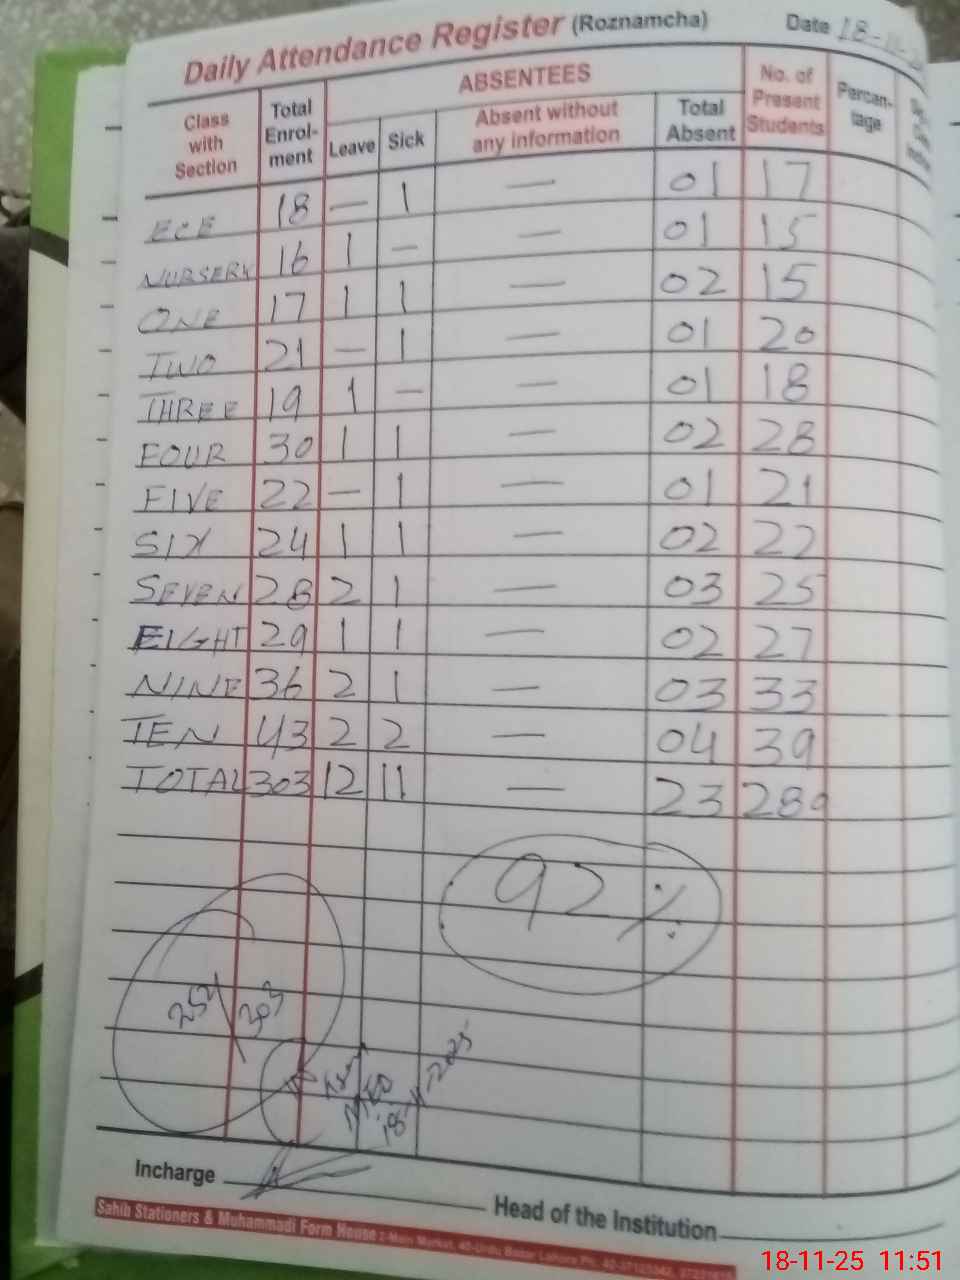 Daily Attendance Register (Roznamcha) Date 18-11-
Class with Section Total Enrol-ment ABSENTEES No. of Present Students Percen-tage
Leave Sick Absent without any information Total Absent
ECE 18 — 1 — 01 17
NURSERY 16 1 — — 01 15
ONE 17 1 1 — 02 15
TWO 21 — 1 — 01 20
THREE 19 1 — — 01 18
FOUR 30 1 1 — 02 28
FIVE 22 — 1 — 01 21
SIX 24 1 1 — 02 22
SEVEN 28 2 1 — 03 25
EIGHT 29 1 1 — 02 27
NINE 36 2 1 — 03 33
TEN 43 2 2 — 04 39
TOTAL 303 12 11 — 23 280
92 %
303
18-11-2025
Incharge
Head of the Institution
Sahib Stationers & Muhammadi Form House 2-Main Market, 40-Urdu Bazar Lahore Ph:
18-11-25 11:51